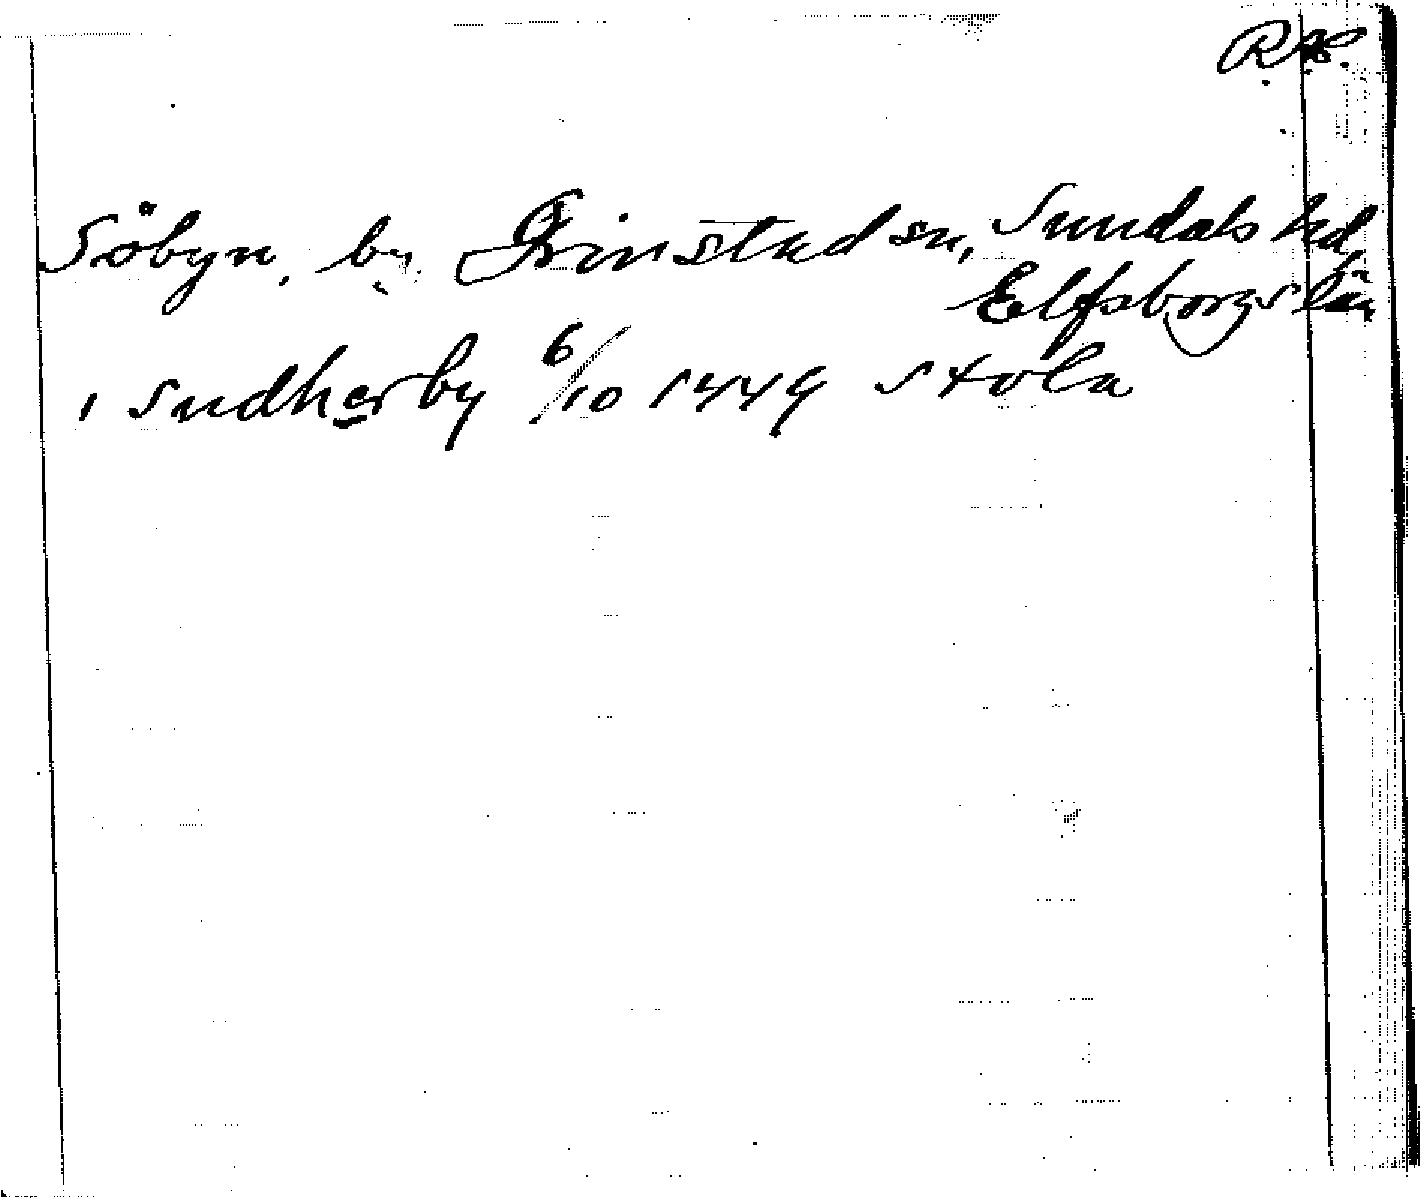 Söbyn, by Grinstad sn, Sundals hd
Elfsborgs län
i sudherby 6/10 1449 Stola